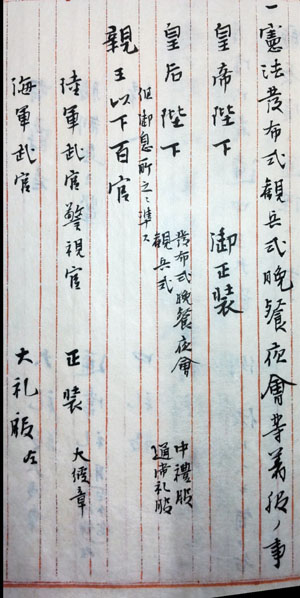 一憲法發布式觀兵式晩餐夜會等着服ノ事
皇帝陛下　御正装
皇后陛下　發布式晩餐夜會　中禮服
觀兵式　通常礼服
但御息所之ニ準ス
親王以下百官
陸軍武官警視官　正装　大綬章
海軍武官　大礼服